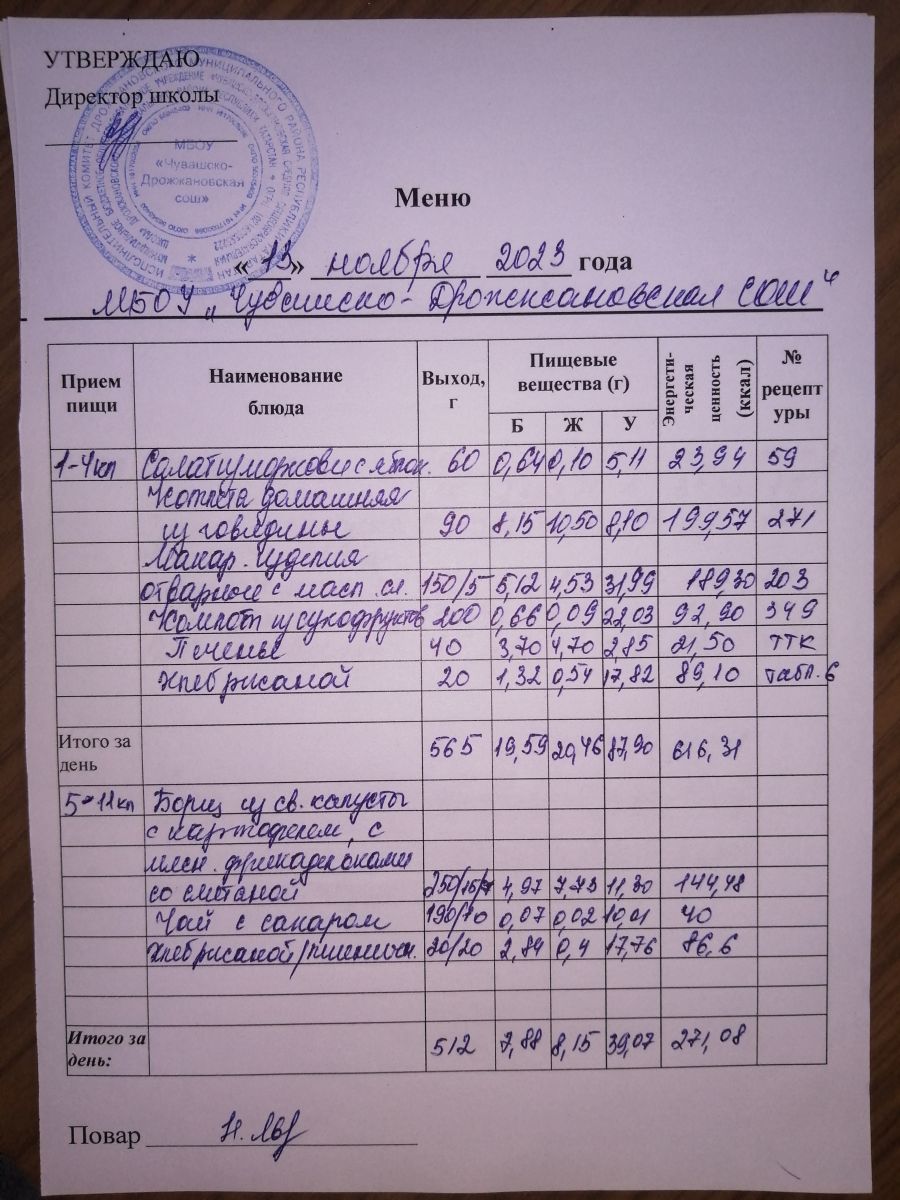 УТВЕРЖДАЮ
Директор школы
МБОУ
«Чувашско-
Дрожжановская
сош»
Меню
«13» ноября 2023 года
МБОУ „Чувашско-Дрожжановская СОШ“
Прием пищи Наименование блюда Выход, г Пищевые вещества (г) Энергети-ческая ценность (ккал) № рецептуры
Б Ж У
1-4кл Салат из моркови с яблок. 60 0,64 0,10 5,11 23,94 59
Котлета домашняя
из говядины 90 8,15 10,50 8,10 199,57 271
Макар. изделия
отварные с масл. сл. 150/5 5,12 4,53 31,99 189,30 203
Компот из сухофруктов 200 0,66 0,09 22,03 92,90 349
Печенье 40 3,70 4,70 2,85 21,50 ТТК
Хлеб ржаной 20 1,32 0,54 17,82 89,10 табл. 6
Итого за день 565 19,59 20,46 87,90 616,31
5-11кл Борщ из св. капусты
с картофелем, с
мясн. фрикадельками
со сметаной 4,97 7,73 11,30 144,48
Чай с сахаром 190/10 0,07 0,02 10,01 40
Хлеб ржаной/пшеничн. 20/20 2,84 0,4 17,76 86,6
Итого за день: 512 7,88 8,15 39,07 271,08
Повар